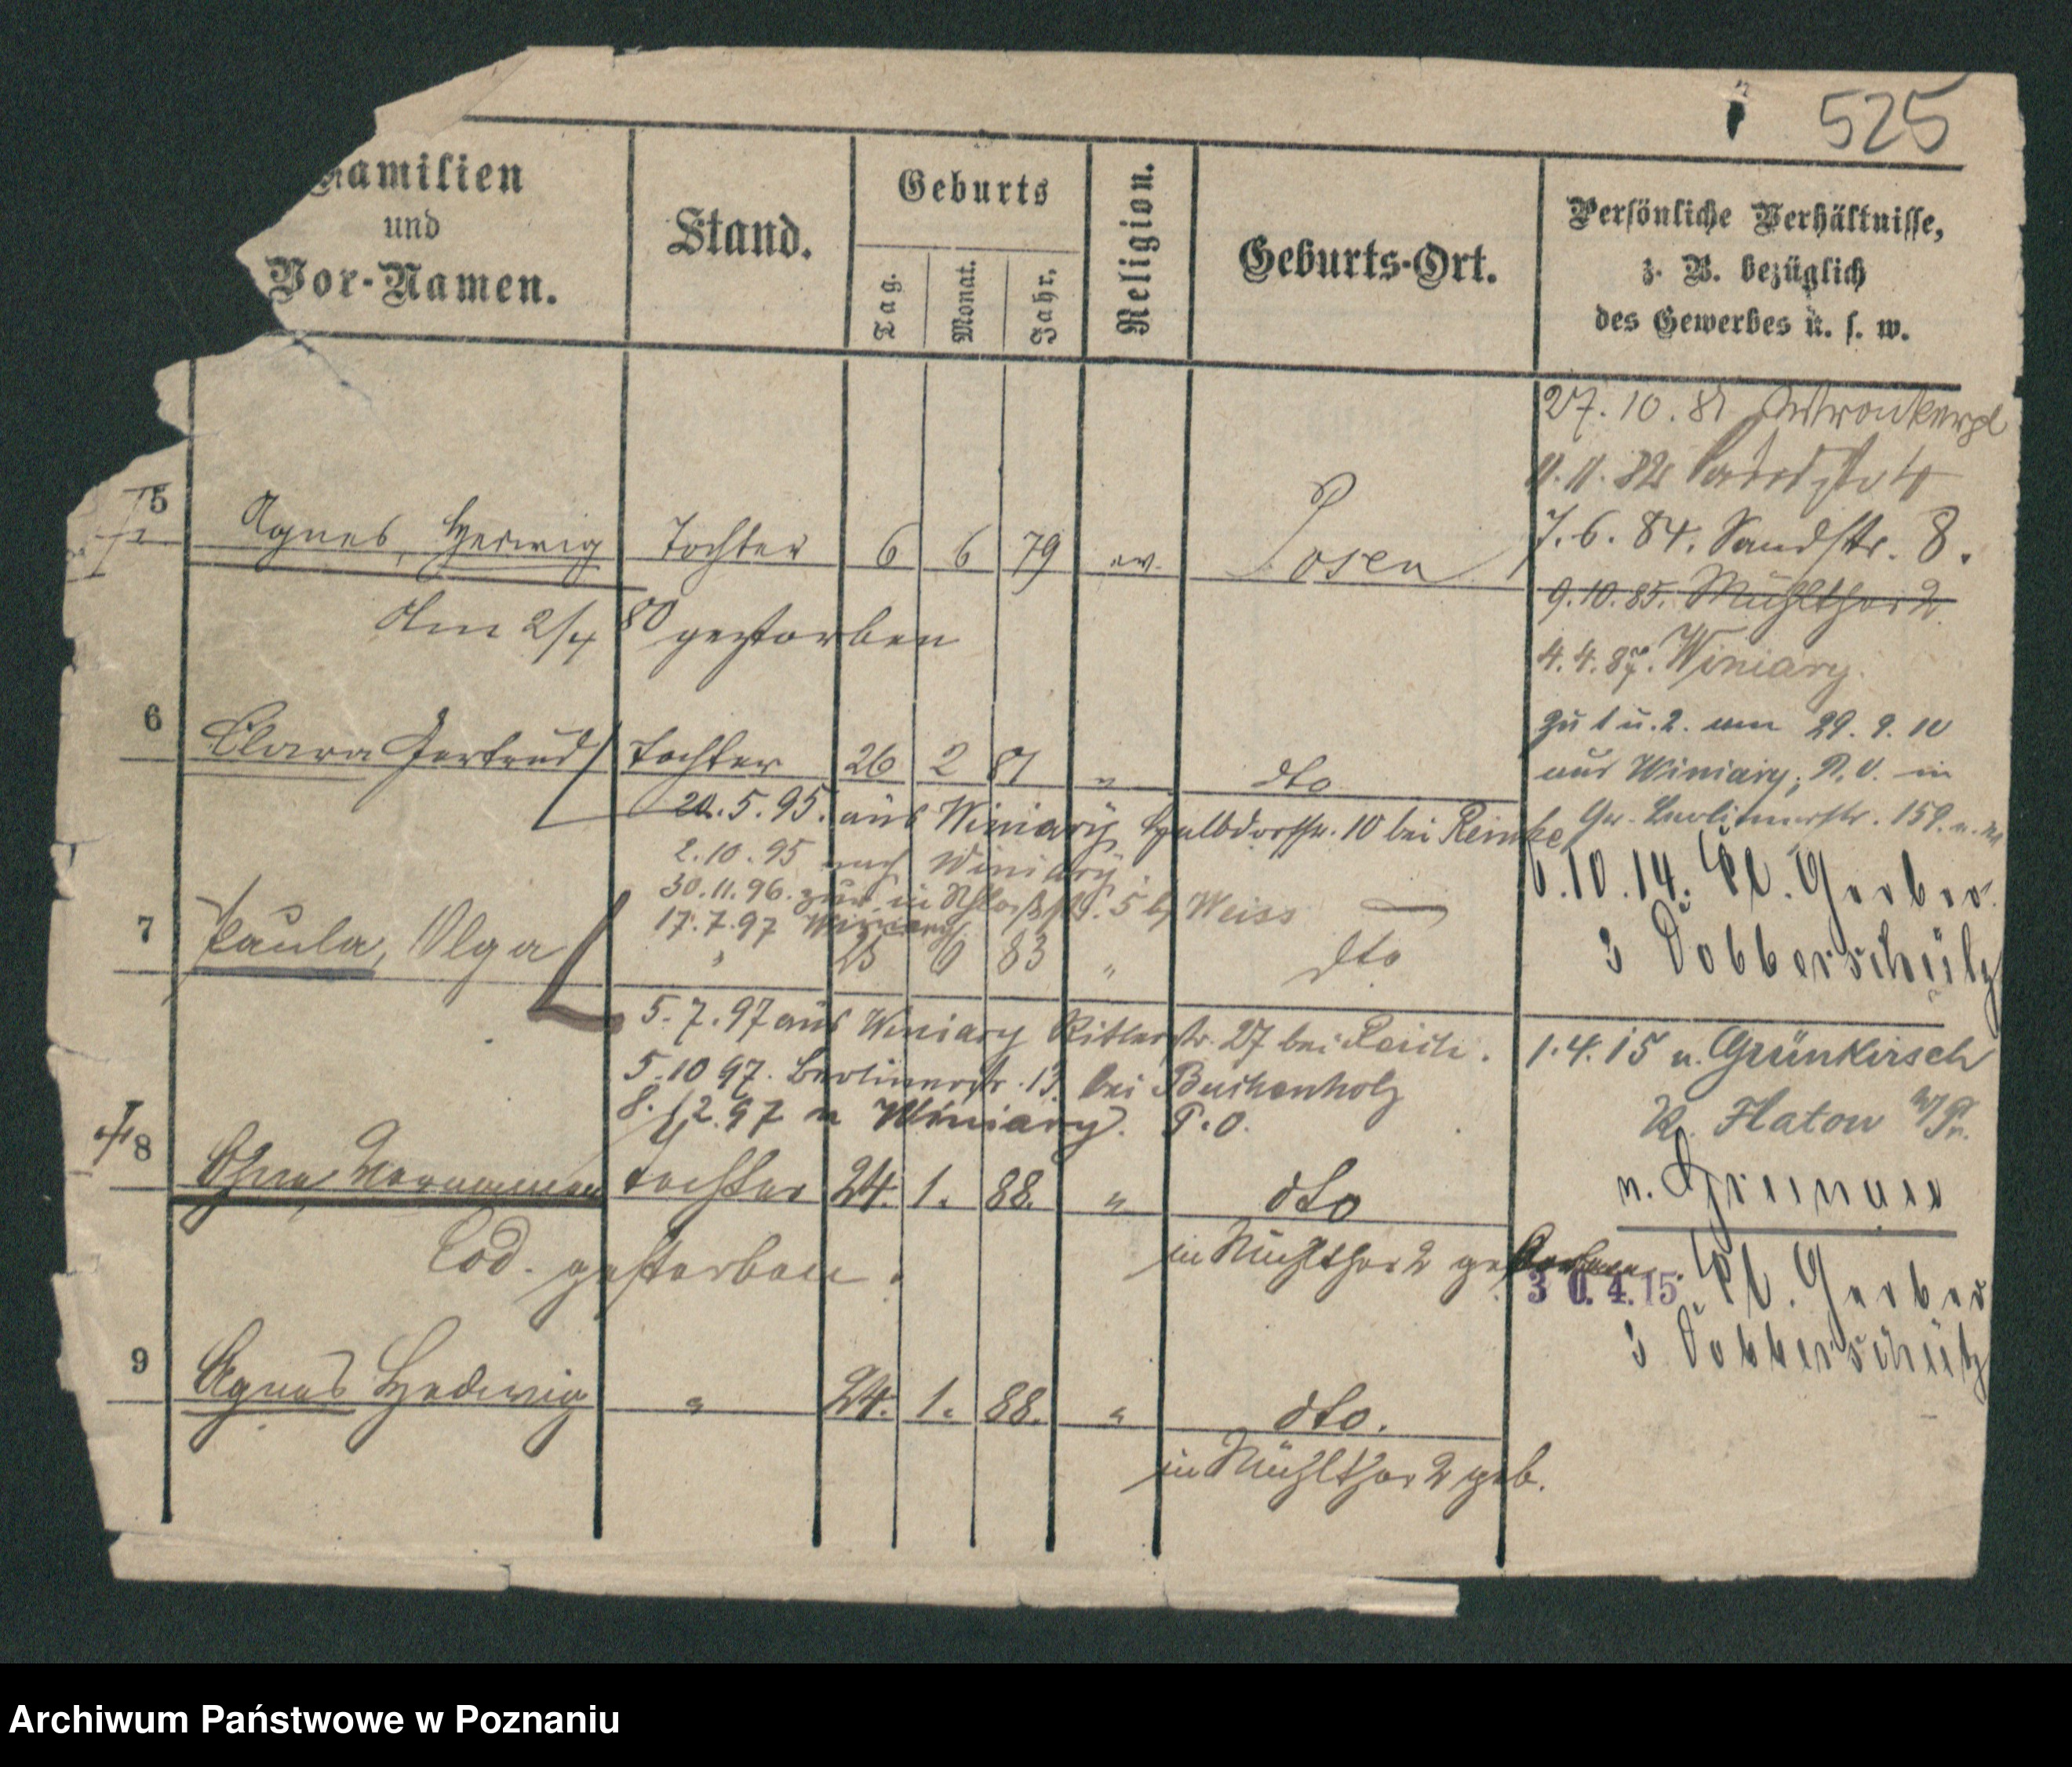 525
Familien
und
Vor-Namen.
Stand.
Geburts
Tag.
Monat.
Jahr.
Religion.
Geburts-Ort.
Persönliche Verhältnisse,
z. B. bezüglich
des Gewerbes u. s. w.
27.10.81 Wronkerpl
11.11.82
7.6.84. Sandstr. 8.
9.10.85. Mühlthor 2.
4.4.87. Winiary.
zu 1 u. 2. am 29.9.10
aus Winiary, P.O. in
Gr. Berlinerstr. 159.
6.10.14. Kl. Gerber
3 Dobberschütz
1.4.15 n. Grünkirsch
Kr. Flatow W/Pr.
n.
30.4.15 Kl. Gerber
3 Dobberschütz
5 Agnes, Hedwig Tochter 6 6 79 ev. Posen
Am 2/4 80 gestorben
6 Clara Gertrud Tochter 26 2 81 " dto
20.5.95. aus Winiary, Halbdorfstr. 10 bei Reinke
2.10.95 nach Winiary.
30.11.96. zur. in Schloßstr. 5 b/ Weiss
17.7.97 Winiary
7 Paula, Olga " 25 6 83 " dto
5.7.97 aus Winiary Ritterstr. 27 bei
5.10 97. Berlinerstr. 13 bei Buchenholz
8.12.97 n Winiary. P.O.
8 Ohne Vornamen Tochter 24. 1. 88. " dto
Tod. gestorben. in Mühlthor 2 geboren.
9 Agnes Hedwig " 24. 1. 88. " dto.
in Mühlthor 2 geb.
Archiwum Państwowe w Poznaniu